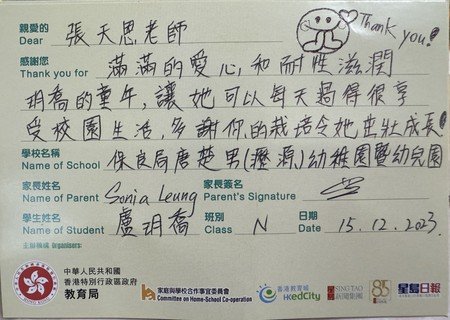 親愛的 張天恩老師
Dear
Thank you!
感謝您 滿滿的愛心,和耐性滋潤
Thank you for
玥喬的童年,讓她可以每天過得很享
受校園生活,多謝你的栽培令她茁壯成長
學校名稱 保良局唐楚男(瀝源)幼稚園暨幼兒園
Name of School
家長姓名 Sonia Leung 家長簽名
Name of Parent Parent's Signature
學生姓名 盧玥喬 班別 N 日期 15.12.2023
Name of Student Class Date
主辦機構 Organisers:
中華人民共和國
香港特別行政區政府
教育局
家庭與學校合作事宜委員會
Committee on Home-School Co-operation
香港教育城
HKedCity
星島新聞集團
SING TAO
85
星島日報